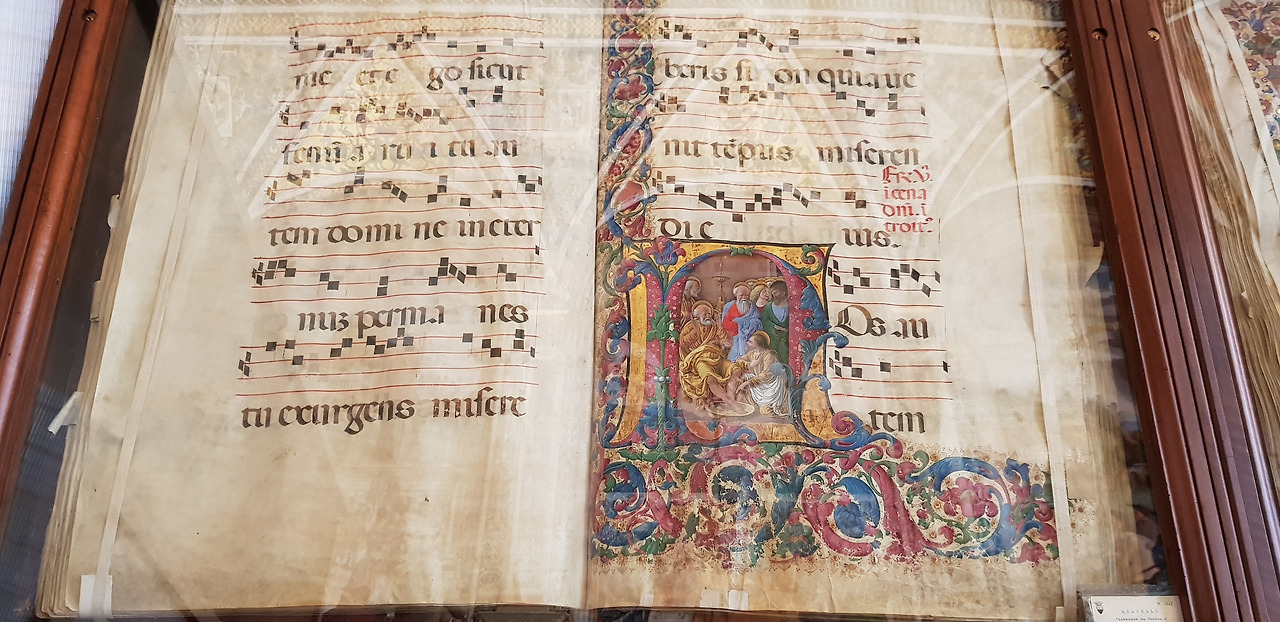 me et e go sicut
fenũ a ru i tu au
tem domi ne in eter
nuz perma nes
tu exurgens misere
beris si on quia ue
nit tẽpus miseren
di e ius.
i cena
dñi. i
troit⁹
N Os au
tem